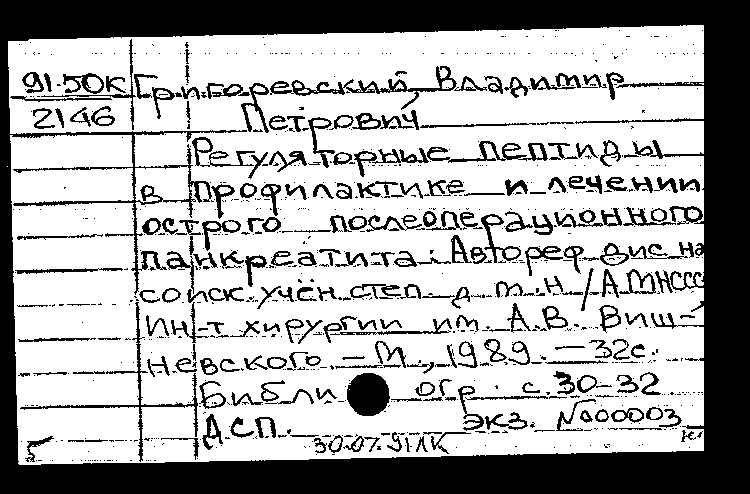 91-50К Григоревский, Владимир
2146 Петрович
Регуляторные пептиды
в профилактике и лечении
острого послеоперационного
панкреатита: Автореф дис на
соиск. учён. степ. д. м. н. /АМНСССР
Ин-т хирургии им. А.В. Виш-
невского. – М., 1989. – 32с.
Библиогр. с. 30-32
ДСП. экз. №00003
5 30.07.91ЛК